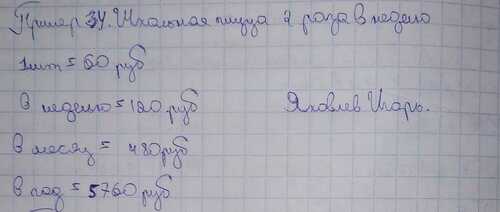 Пример 34. Школьная пицца 2 раза в неделю
1шт = 60 руб
В неделю = 120 руб
Яковлев Игорь.
В месяц = 480 руб
В год = 5760 руб